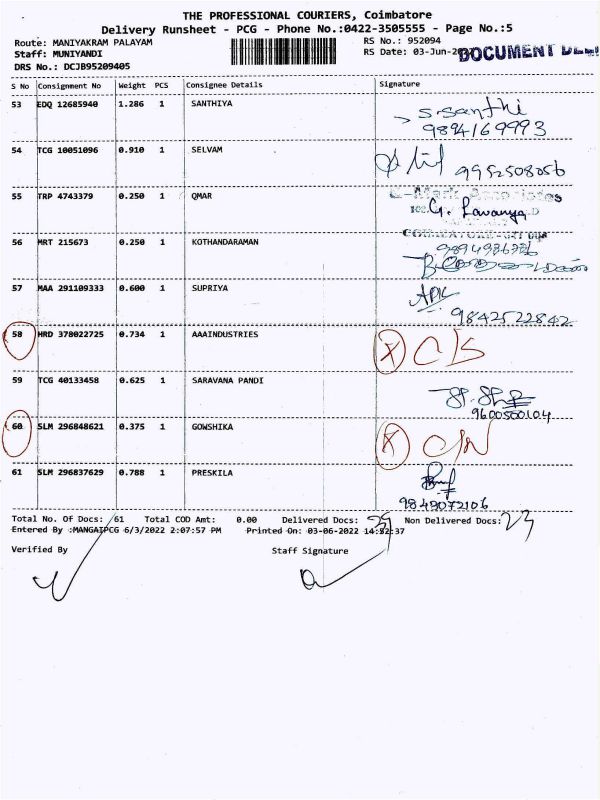 THE PROFESSIONAL COURIERS, Coimbatore
Delivery Runsheet - PCG - Phone No.:0422-3505555 - Page No.:5
Route: MANIYAKRAM PALAYAM RS No.: 952094
Staff: MUNIYANDI RS Date: 03-Jun-2022
DOCUMENT
DRS No.: DCJB95209405
S No Consignment No Weight PCS Consignee Details Signature
53 EDQ 12685940 1.286 1 SANTHIYA S.Santhi
9894169993
54 TCG 10051096 0.910 1 SELVAM
9952508056
55 TRP 4743379 0.250 1 QMAR
G. Lavanya
56 MRT 215673 0.250 1 KOTHANDARAMAN
57 MAA 291109333 0.600 1 SUPRIYA
9842522842
58 HRD 378022725 0.734 1 AAAINDUSTRIES X
59 TCG 40133458 0.625 1 SARAVANA PANDI
9600500104
60 SLM 296848621 0.375 1 GOWSHIKA X
61 SLM 296837629 0.788 1 PRESKILA
9849072106
Total No. Of Docs: 61 Total COD Amt: 0.00 Delivered Docs: Non Delivered Docs: 23
Entered By :MANGAIPCG 6/3/2022 2:07:57 PM Printed On: 03-06-2022 14:52:37
Verified By Staff Signature